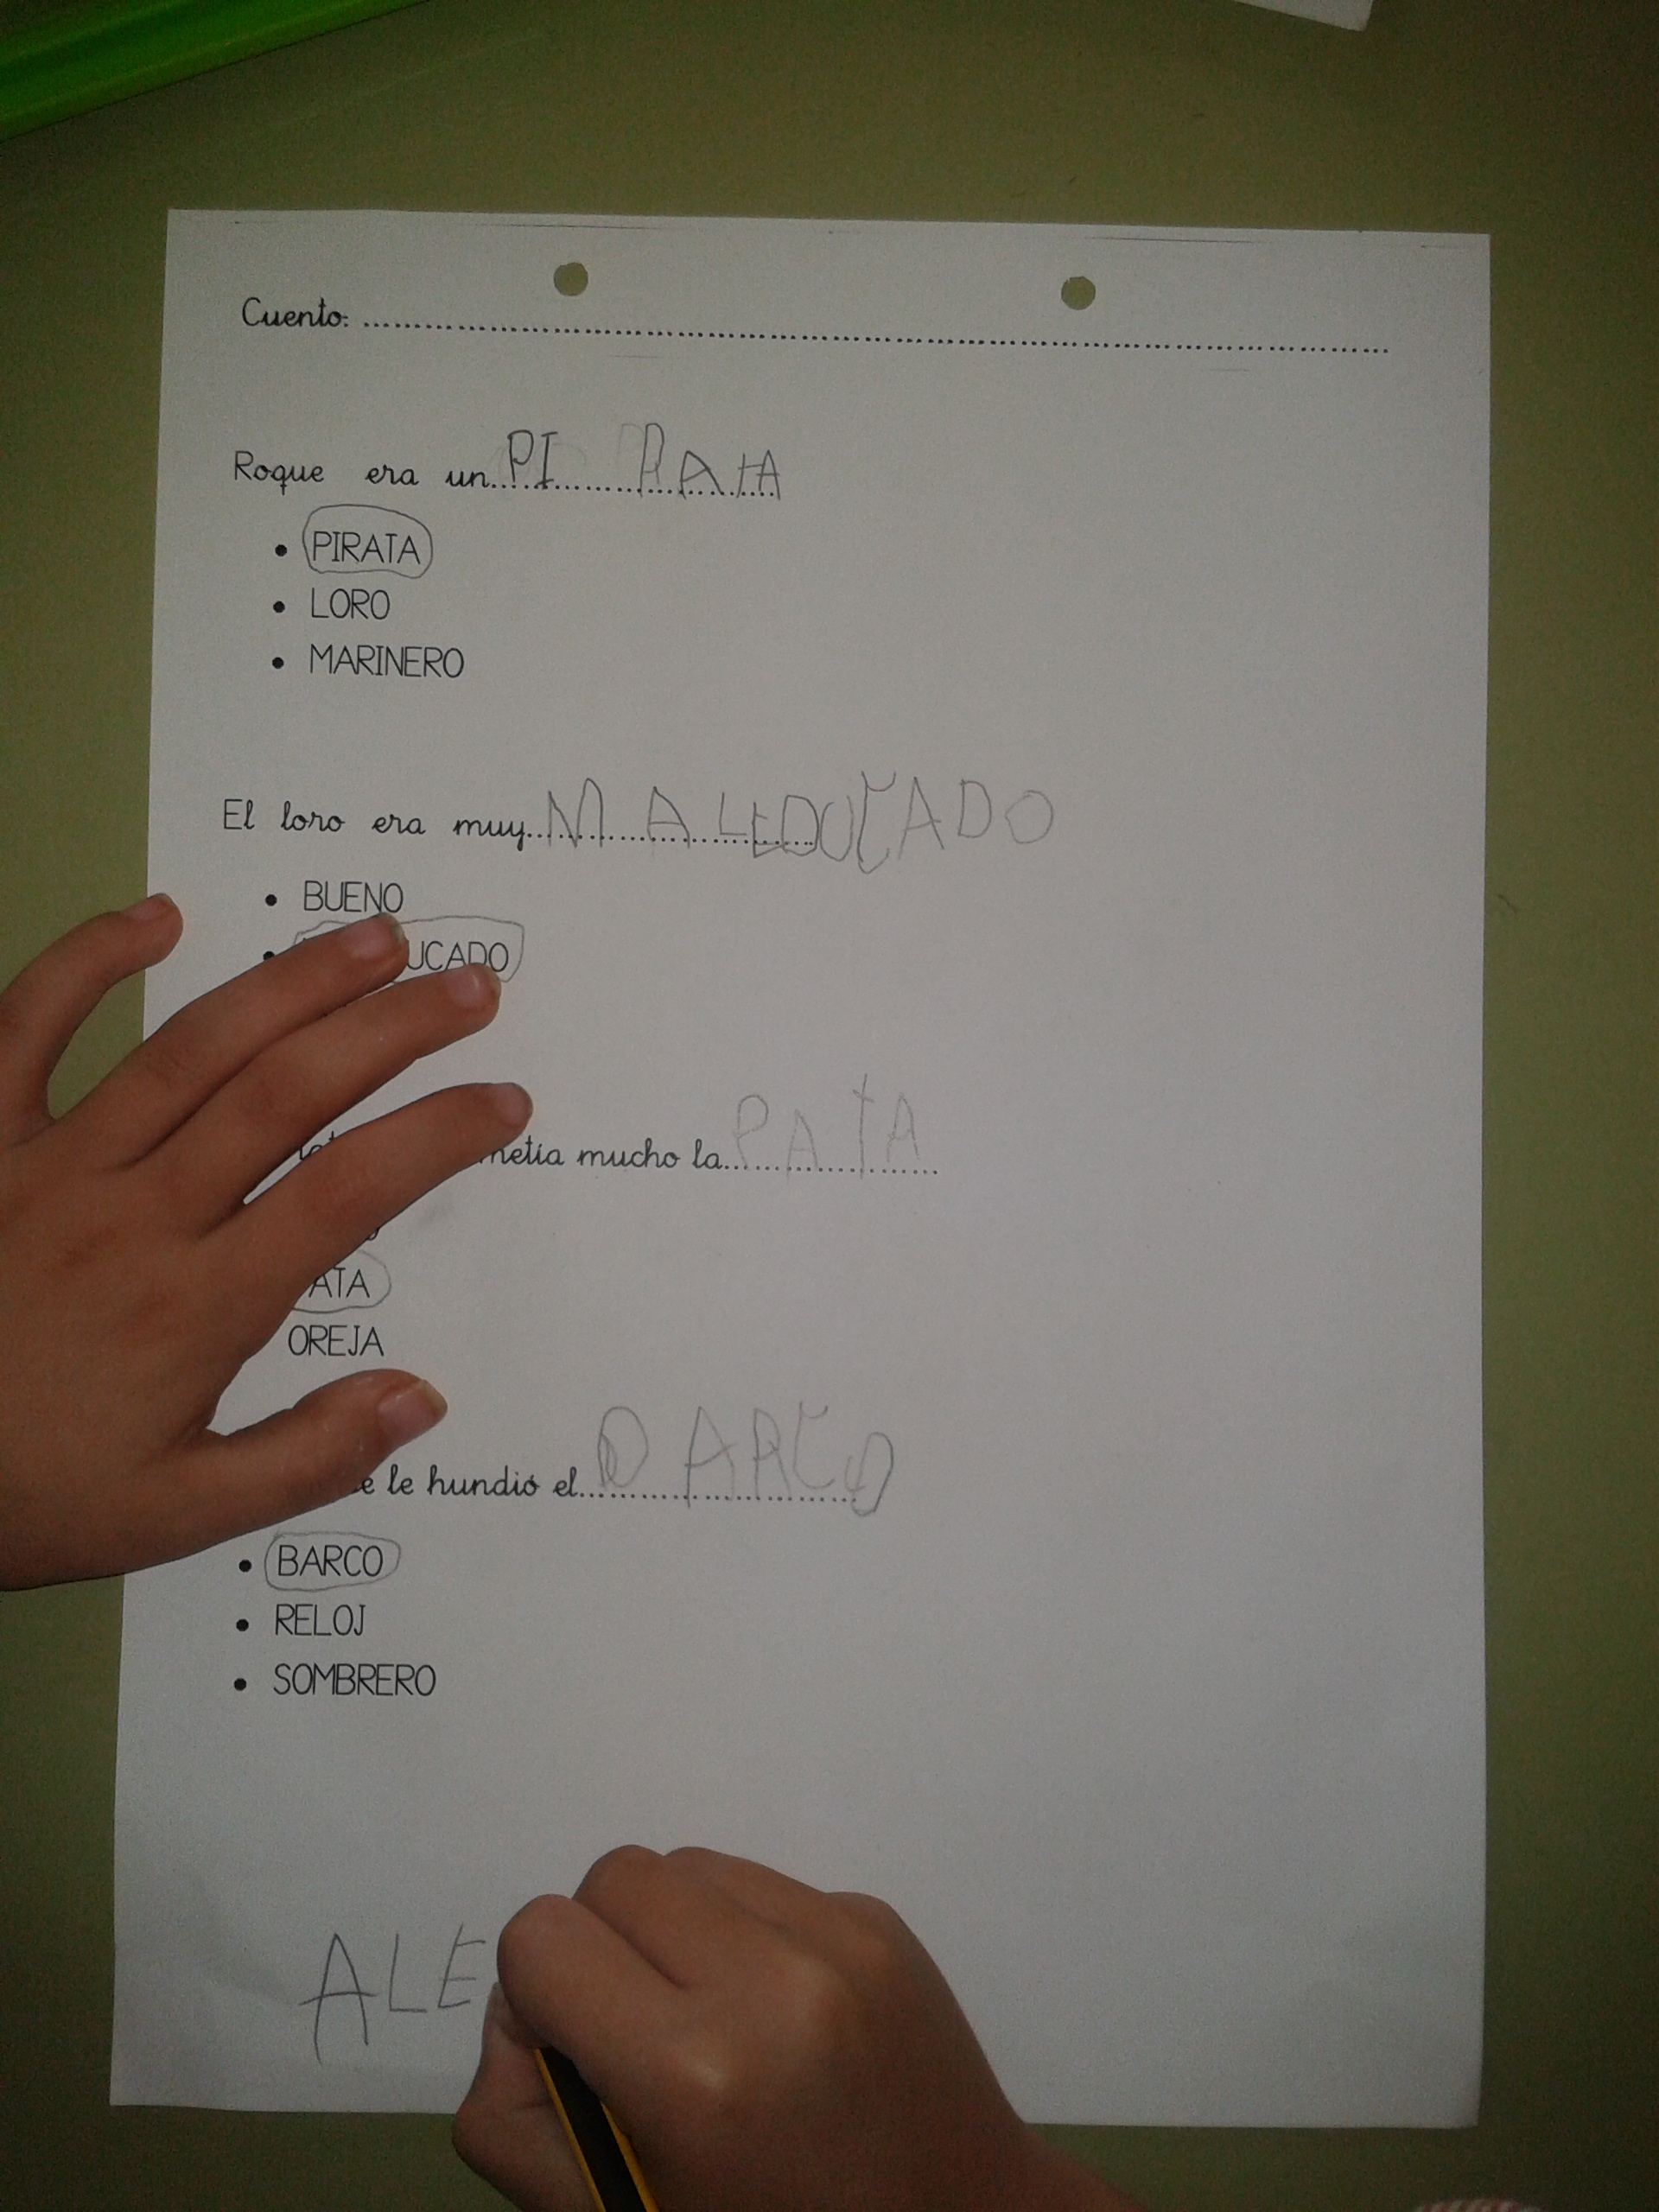 Cuento: ................................................
Roque era un PIRATA
• PIRATA
• LORO
• MARINERO
El loro era muy MALEDUCADO
• BUENO
• UCADO
metía mucho la PATA
ATA
OREJA
le hundió el BARCO
• BARCO
• RELOJ
• SOMBRERO
ALE